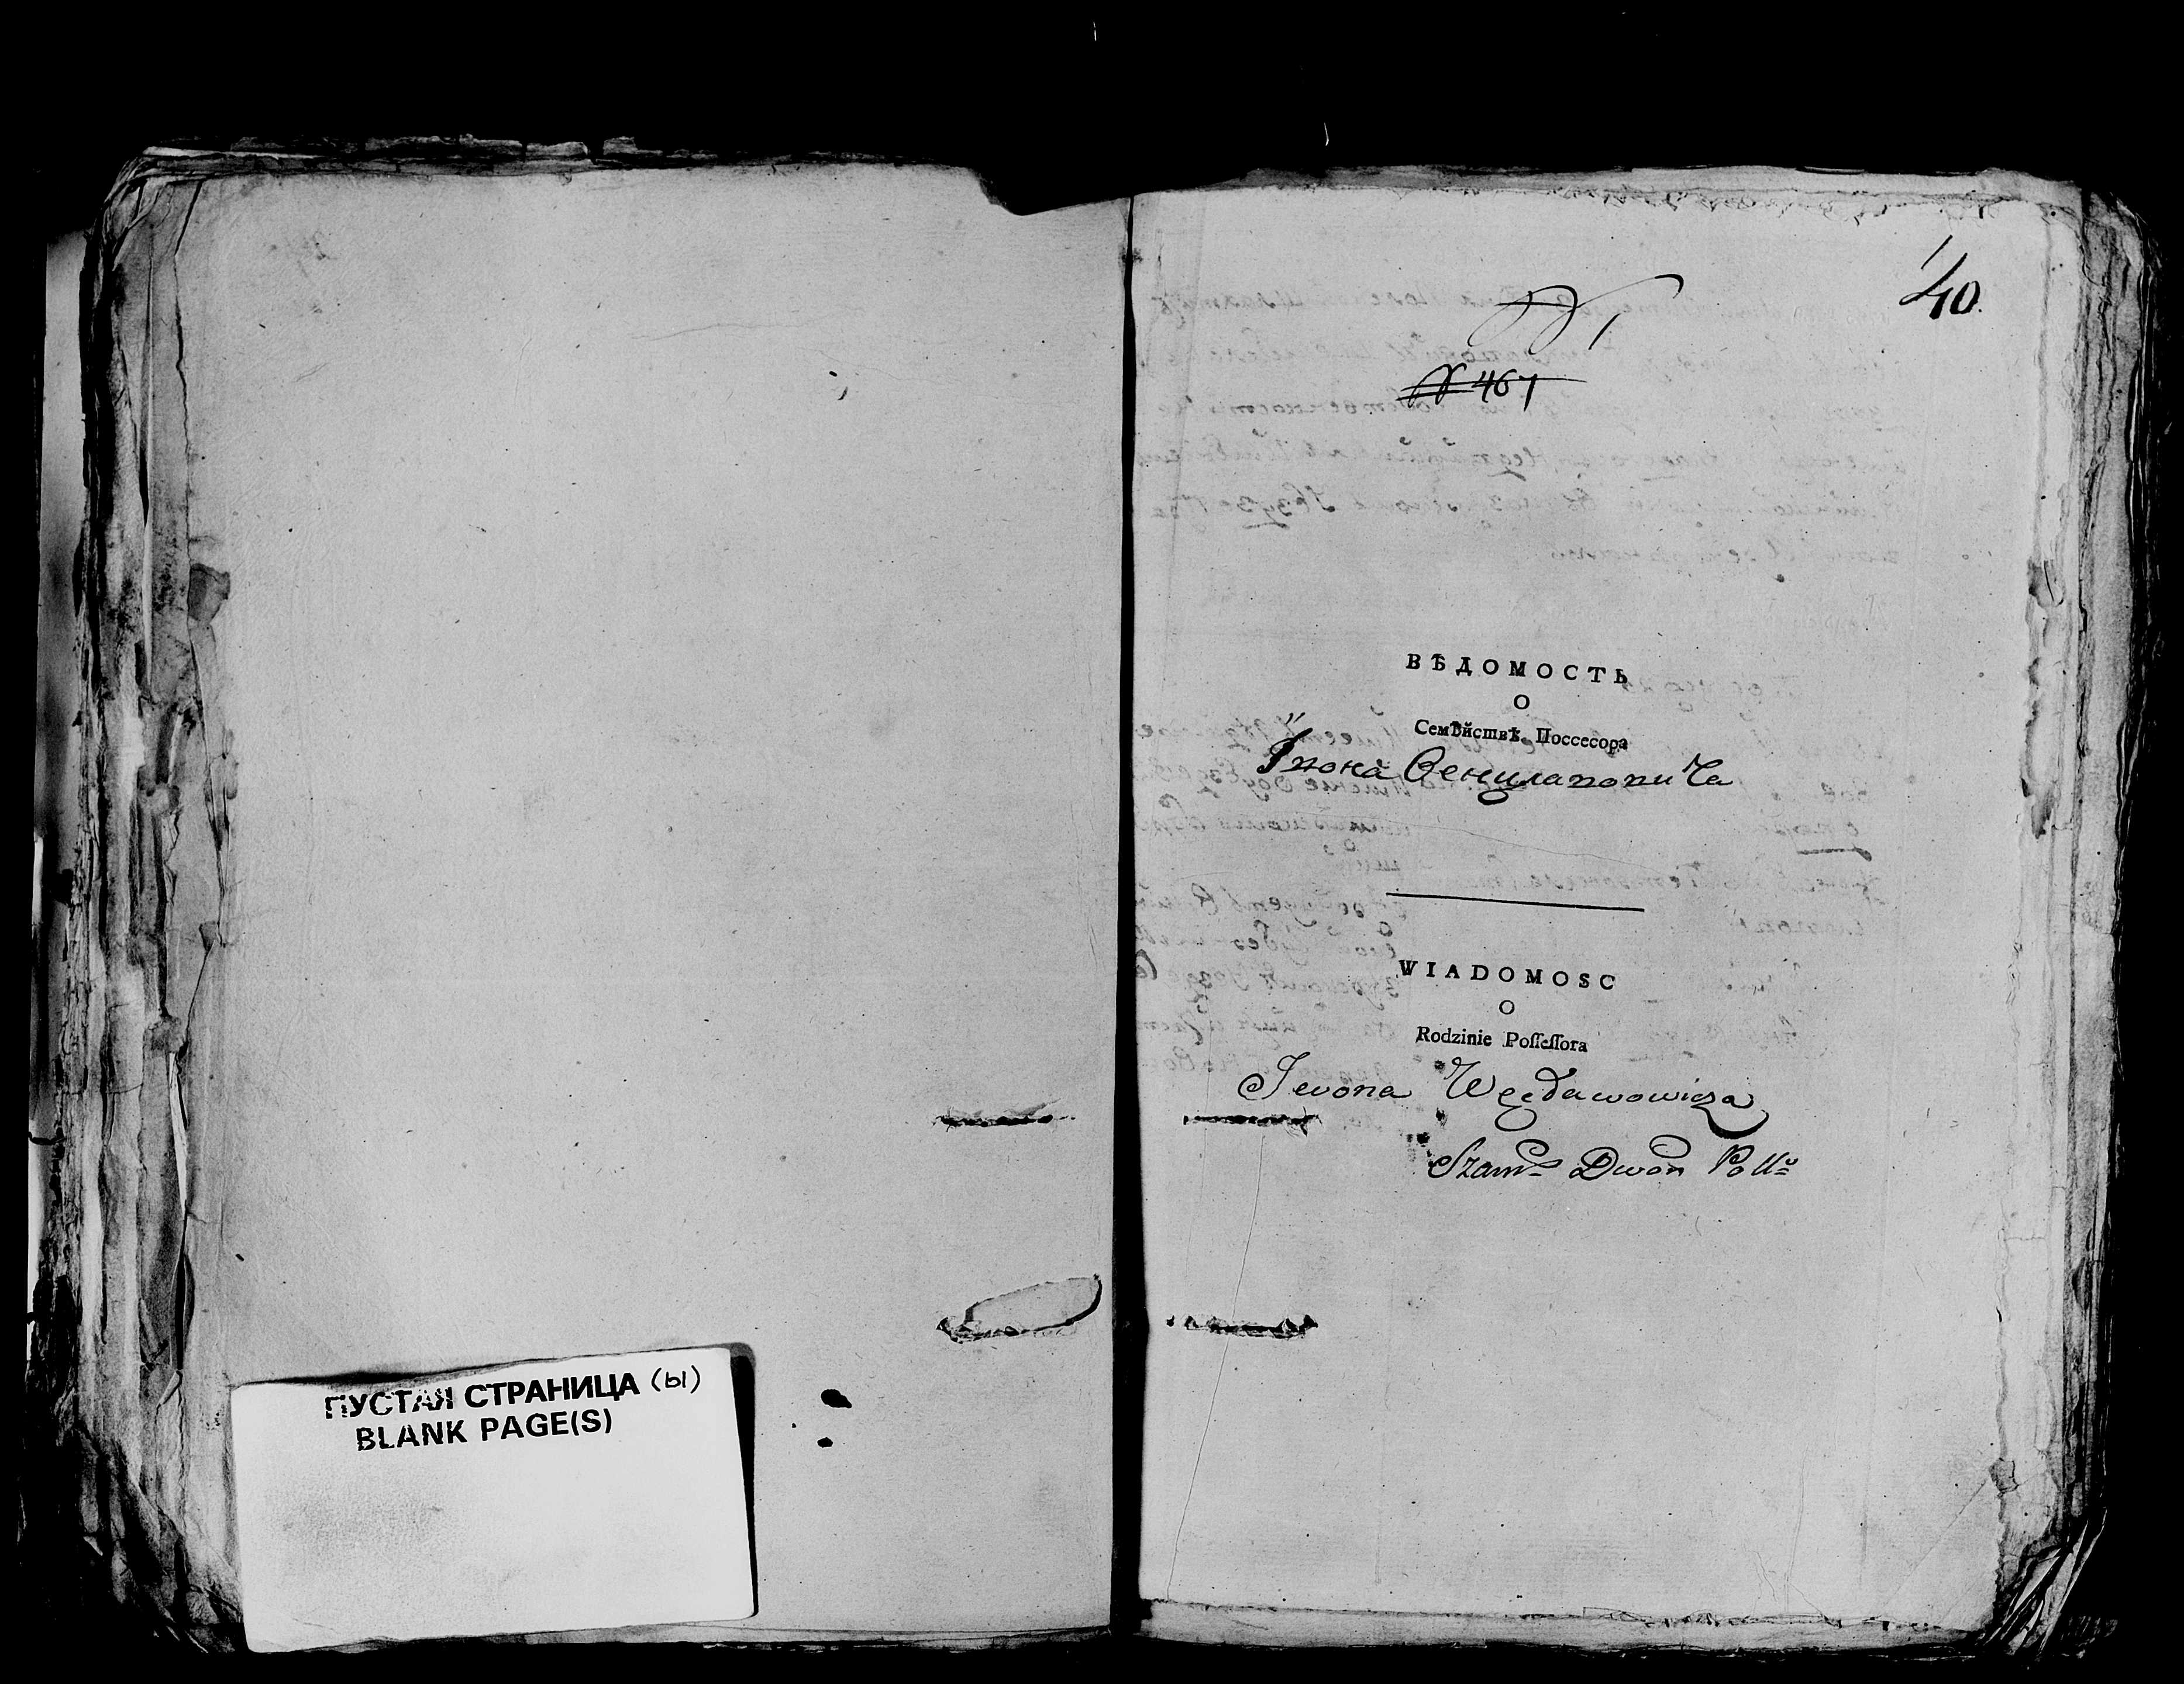 ПУСТАЯ СТРАНИЦА (ы)
BLANK PAGE(S)
40.
№ 1
№ 461
ВѢДОМОСТЬ
О
Семѣйствѣ Поссесора
Івона Венцлавовича
WIADOMOSC
O
Rodzinie Poſſeſſora
Iwona Węcławowicza
Szam: Dwor Poll: